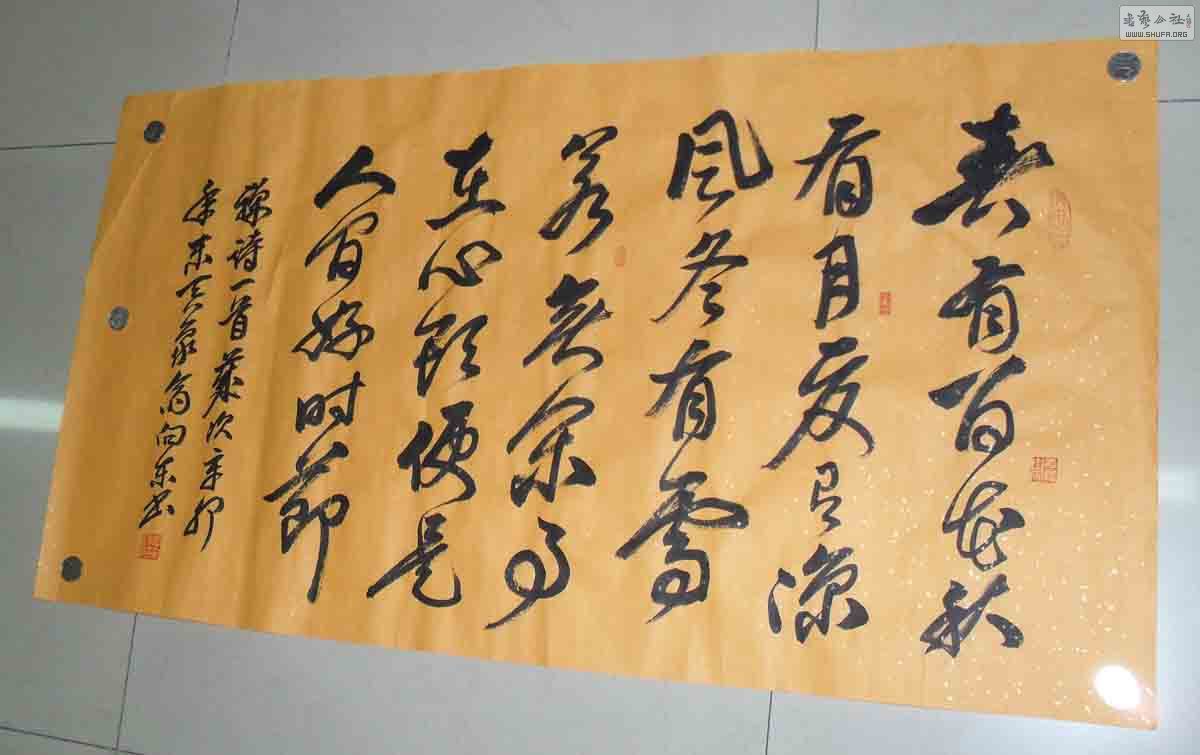 春有百花秋
有月夏有凉
风冬有雪
若無余事
在心头便是
人间好时節
禅诗一首岁次辛卯
季翁向东书
书艺公社
WWW.SHUFA.ORG